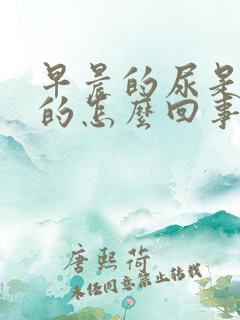 早晨的尿是
的怎麼回事
唐熙荷
未经同意禁止转载